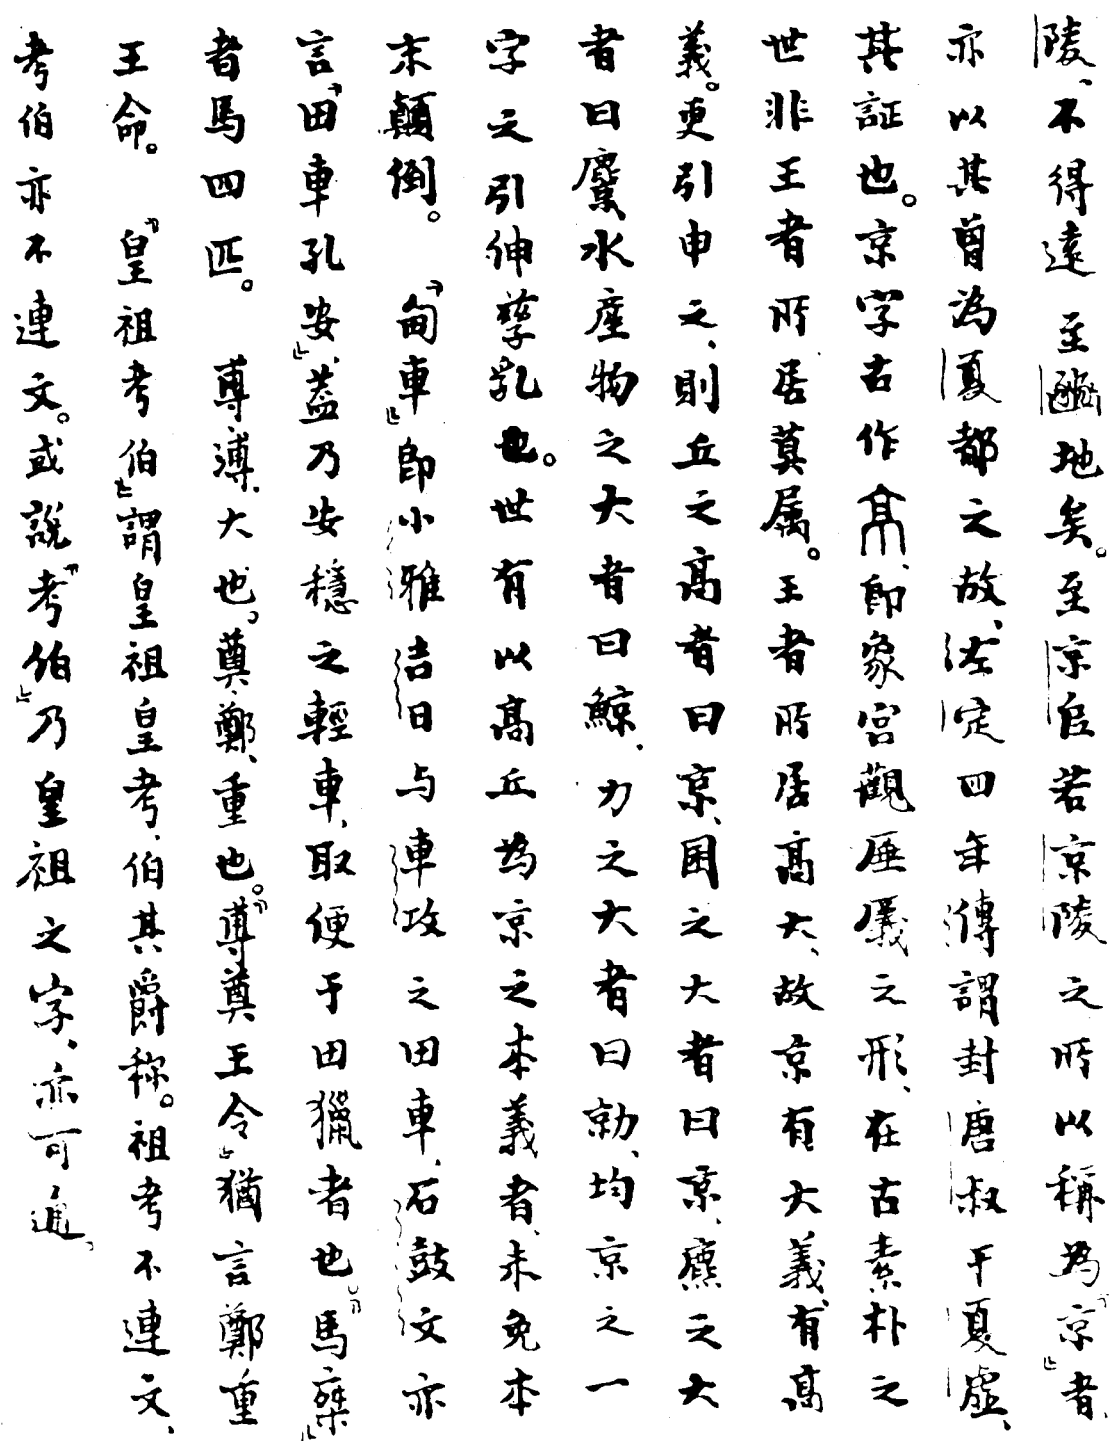 陵、不得遠至䣙地矣。至京𠂤若京陵之所以稱為「京」者、
亦以其曾為夏都之故、左定四年傳謂封唐叔于夏虛、
其証也。京字古作、即象宮觀厜㕒之形、在古素朴之
世非王者所居莫属。王者所居高大、故京有大義、有高
義。更引申之、則丘之高者曰京、囷之大者曰京、麃之大
者曰麠、水産物之大者曰鯨、力之大者曰勍、均京之一
字之引伸孳乳也。世有以高丘為京之本義者、未免本
末顛倒。「甸車」即小雅吉日与車攻之田車、石鼓文亦
言「田車孔安」、蓋乃安穩之輕車、取便于田獵者也。「馬𠦪」
者馬四匹。 尃溥、大也。奠鄭、重也。「尃奠王令」猶言鄭重
王命。 「皇祖考伯」謂皇祖皇考、伯其爵称。祖考不連文、
考伯亦不連文。或説「考伯」乃皇祖之字、亦可通。